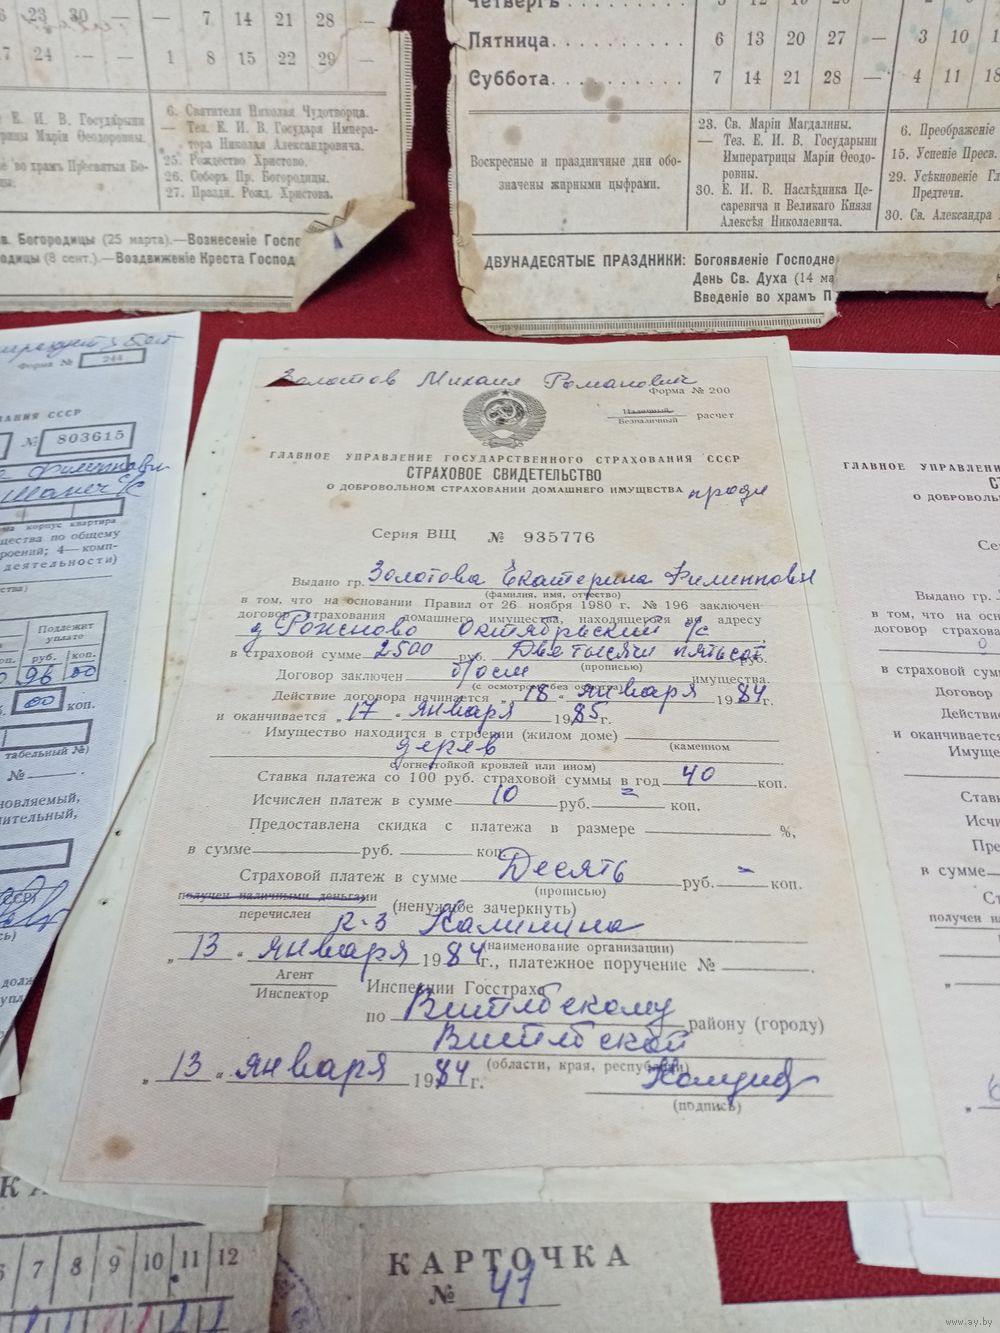 23 30 — — 7 14 21 28 —
17 24 — — 1 8 15 22 29 —
Е. И. В. Государыни
Маріи Ѳеодоровны.
во храмъ Пресвятыя Бо-
6. Святителя Николая Чудотворца.
— Тез. Е. И. В. Государя Импера-
тора Николая Александровича.
25. Рождество Христово.
26. Соборъ Пр. Богородицы.
27. Праздн. Рожд. Христова.
Богородицы (25 марта).—Вознесеніе Госпо
одицы (8 сент.).—Воздвиженіе Креста Господ
Четвергъ
Пятница. . . . . . . . . . 6 13 20 27 — 3 10 1
Суббота. . . . . . . . . . 7 14 21 28 — 4 11 18
Воскресные и праздничные дни обо-
значены жирными цыфрами.
23. Св. Маріи Магдалины.
— Тез. Е. И. В. Государыни
Императрицы Маріи Ѳеодо-
ровны.
30. Е. И. В. Наслѣдника Це-
саревича и Великаго Князя
Алексѣя Николаевича.
6. Преображеніе
15. Успеніе Пресв.
29. Усѣкновеніе Гл
Предтечи.
30. Св. Александра
ДВУНАДЕСЯТЫЕ ПРАЗДНИКИ: Богоявленіе Господне
День Св. Духа (14 ма
Введеніе во храмъ П
Форма № 244
АНИЯ СССР
№ 803615
корпус квартира
щества по общему
роений; 4— комп-
деятельности)
Подлежит
уплате
руб. коп.
96 00
00 коп.
табельный №)
№
новляемый,
Золотов Михаил Романович
Форма № 200
Наличный
Безналичный
расчет
ГЛАВНОЕ УПРАВЛЕНИЕ ГОСУДАРСТВЕННОГО СТРАХОВАНИЯ СССР
СТРАХОВОЕ СВИДЕТЕЛЬСТВО
О ДОБРОВОЛЬНОМ СТРАХОВАНИИ ДОМАШНЕГО ИМУЩЕСТВА
Серия ВЩ № 935776
Выдано гр. Золотова Екатерина Филиппови
(фамилия, имя, отчество)
в том, что на основании Правил от 26 ноября 1980 г. № 196 заключен
договор страхования домашнего имущества, находящегося по адресу
д Рожново Октябрьский с/с
в страховой сумме 2500 руб. Две тысячи пятьсот руб.
(прописью)
Договор заключен б/осм имущества.
(с осмотром, без осмотра)
Действие договора начинается „ 18 " января 1984 г.
и оканчивается „ 17 " января 1985 г.
Имущество находится в строении (жилом доме)
дерев (каменном
с огнестойкой кровлей или ином)
Ставка платежа со 100 руб. страховой суммы в год 40 коп.
Исчислен платеж в сумме 10 руб. = коп.
Предоставлена скидка с платежа в размере %,
в сумме руб. коп.
Страховой платеж в сумме Десять руб. – коп.
(прописью)
получен наличными деньгами
перечислен
(ненужное зачеркнуть)
к-з Калинина
(наименование организации)
„ 13 " января 1984 г., платежное поручение №
Агент
Инспектор
Инспекции Госстраха
по Витебскому району (городу)
Витебской
(области, края, республики)
„ 13 " января 1984 г.
(подпись)
ГЛАВНОЕ УПРАВЛЕН
О ДОБРОВОЛЬ
Се
Выдано гр.
в том, что на осн
договор страхова
в страховой сум
Договор
Действие
и оканчивается
Имуще
Ставк
Исчи
Пре
в сумме
Ст
получен на
7 8 9 10 11 12
КАРТОЧКА
№ 41
www.ay.by